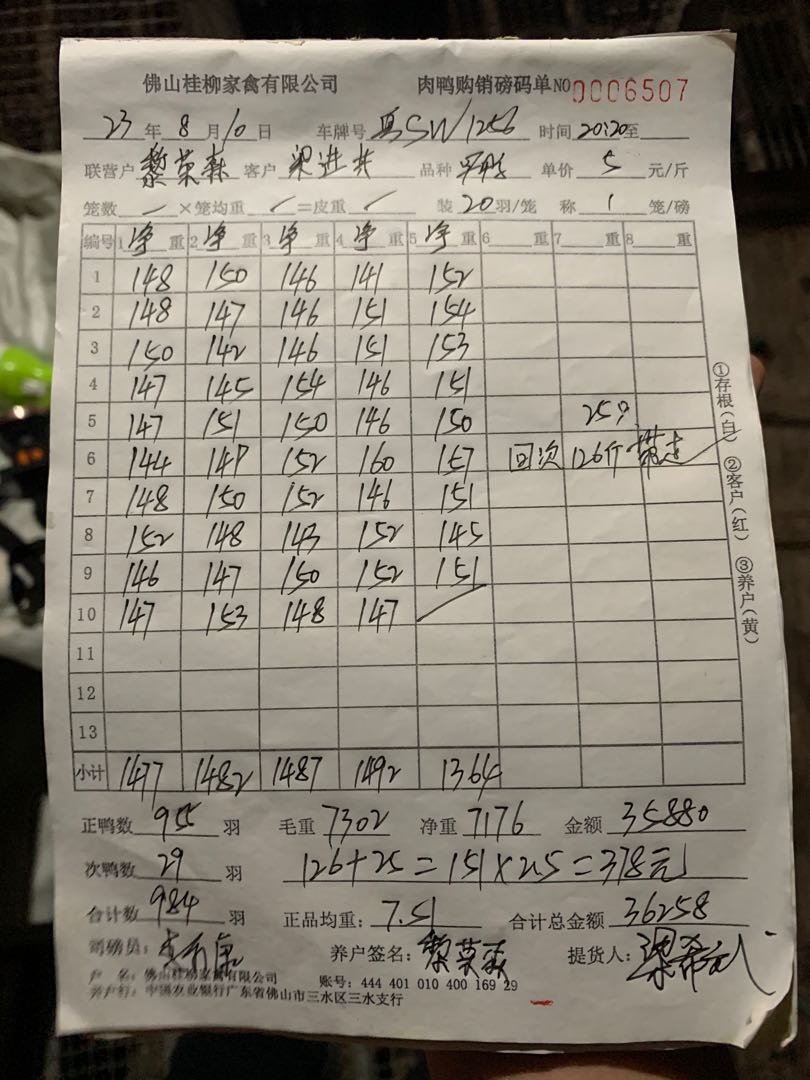 佛山桂柳家禽有限公司 肉鸭购销磅码单NO 0006507
23 年 8 月 10 日 车牌号 SW1256 时间 20:20 至
联营户 黎荣森 客户 梁进共 品种 单价 5 元/斤
笼数 / ×笼均重 / =皮重 / 装 20 羽/笼 称 1 笼/磅
编号 1 净 重 2 净 重 3 净 重 4 净 重 5 净 6 重 7 重 8 重
1 148 150 146 141 152
2 148 147 146 151 154
3 150 142 146 151 153
4 147 145 154 146 151
5 147 151 150 146 150 25
6 144 149 152 160 157 回次 126斤 带走
7 148 150 152 146 151
8 152 148 143 152 145
9 146 147 150 152 151
10 147 153 148 147 /
11
12
13
小计 1477 1482 1487 1492 1364
正鸭数 955 羽 毛重 7302 净重 7176 金额 35880
次鸭数 29 羽 126+25=151×2.5=378元
合计数 984 羽 正品均重: 7.51 合计总金额 36258
司磅员: 养户签名: 黎荣森 提货人:
户 名: 佛山桂柳家禽有限公司 账号: 444 401 010 400 169 29
开户行: 中国农业银行广东省佛山市三水区三水支行
①存根(白) ②客户(红) ③养户(黄)